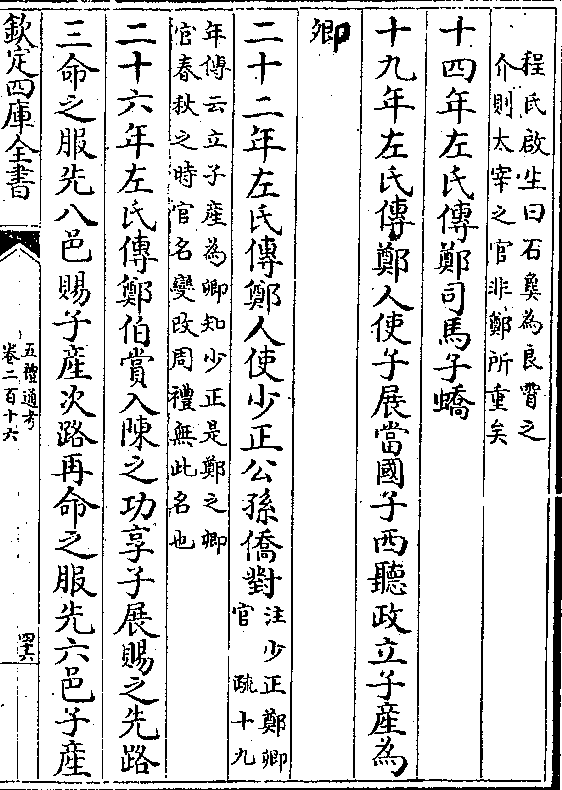 程氏啟生曰石㚟為良霄之
介則太宰之官非鄭所重矣
十四年左氏傳鄭司馬子蟜
十九年左氏傳鄭人使子展當國子西聽政立子産為
卿
二十二年左氏傳鄭人使少正公孫僑對
注少正鄭卿
官 疏十九
年傳云立子産為卿知少正是鄭之卿
官春秋之時官名變改周禮無此名也
二十六年左氏傳鄭伯賞入陳之功享子展賜之先路
三命之服先八邑賜子産次路再命之服先六邑子産
欽定四庫全書
五禮通考
卷二百十六